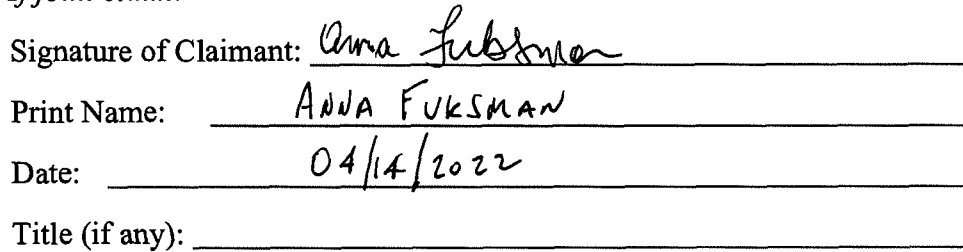 Signature of Claimant: Anna Fuksman
Print Name: ANNA FUKSMAN
Date: 04/14/2022
Title (if any):